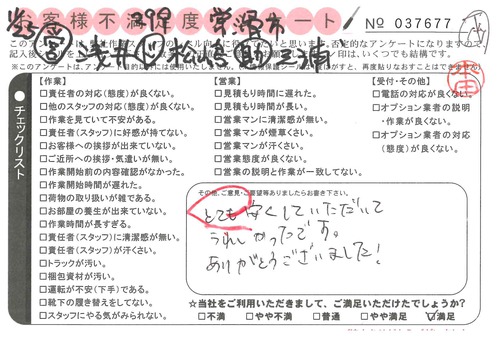 お客様不満足度アンケート
No 037677
常滑市
浅井
松崎
三浦
チェックリスト
【作業】
□責任者の対応(態度)が良くない。
□他のスタッフの対応(態度)が良くない。
□作業を見ていて不安がある。
□責任者(スタッフ)に好感が持てない。
□お客様への挨拶が出来ていない。
□ご近所への挨拶・気遣いが無い。
□作業開始前の内容確認がなかった。
□作業開始時間が遅れた。
□荷物の取り扱いが雑である。
□お部屋の養生が出来ていない。
□作業時間が長すぎる。
□責任者(スタッフ)に清潔感が無い。
□責任者(スタッフ)が汗くさい。
□トラックが汚い。
□梱包資材が汚い。
□運転が不安(下手)である。
□靴下の履き替えをしてない。
□スタッフにやる気がみられない。
【営業】
□見積もり時間に遅れた。
□見積もり時間が長い。
□営業マンに清潔感が無い。
□営業マンが煙草くさい。
□営業マンが汗くさい。
□営業態度が良くない。
□営業の説明と作業が一致してない。
【受付・その他】
□電話の対応が良くない。
□オプション業者の説明
・作業が良くない。
□オプション業者の対応
(態度)が良くない。
その他、ご意見・ご要望等ありましたらお書き下さい。
とても安くしていただいて
うれしかったです。
ありがとうございました!
☆当社をご利用いただきまして、ご満足いただけたでしょうか?
□不満 □やや不満 □普通 □やや満足 ☑満足